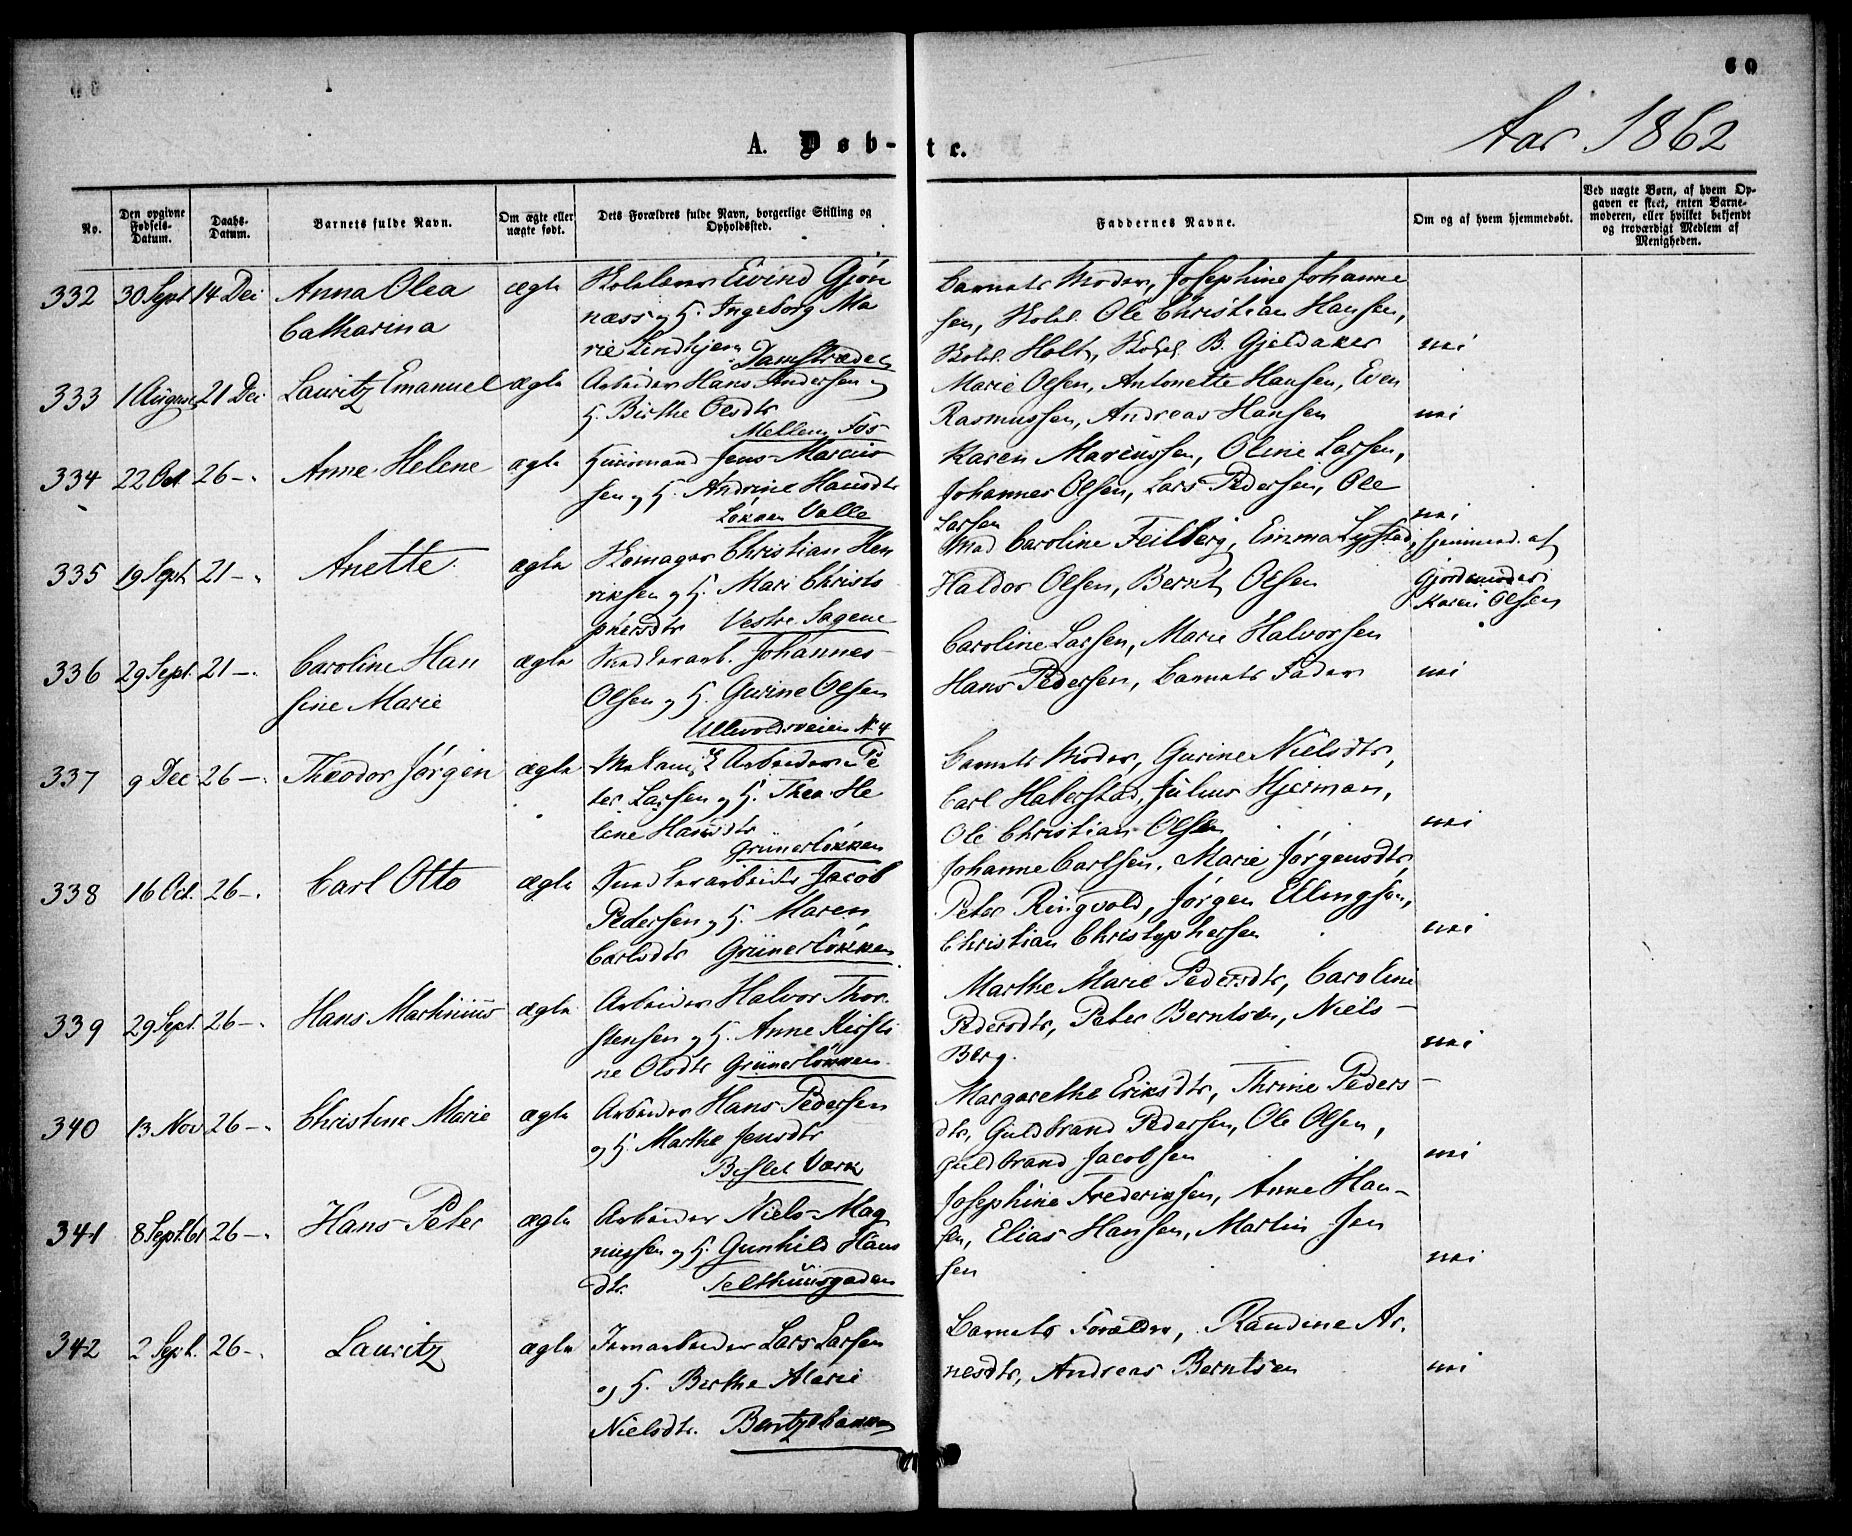 60
Aar 1862
A. Døb-te.
No.
Den opgivne Fødsels-Datum.
Daabs-Datum.
Barnets fulde Navn.
Om ægte eller uægte født.
Dets Forældres fulde Navn, borgerlige Stilling og Opholdssted.
Faddernes Navne.
Om og af hvem hjemmedøbt.
Ved uægte Børn, af hvem Opgaven er skeet, enten Barnemoderen, eller hvilket bekjendt og troværdigt Medlem af Menigheden.
332 30 Sept 14 Dec Anna Olea ægte Skolelærer Eivind Gjøn Barnets Moder, Josephine Johanne
Catharina næss og H. Ingeborg Ma sen, Skolel. Ole Christian Hansen,
rie Lindhjem Damstrædet Skolel. Holt, Skolel. B. Gjeldaker nei
333 1 August 21 Dec Lauritz Emanuel ægte Arbeider Hans Andersen og Marie Olsen, Antonette Hansen, Even
H. Birthe Olsdtr Rasmussen, Andreas Hansen nei
Mellem Fos
334 22 Oct 26 –. Anne Helene ægte Huusmand Jens Marcus Karen Marcussen, Oline Larsen,
sen og H. Andrine Hansdtr Johannes Olsen, Lars Pedersen, Ole
Løkken Valle Larsen nei
335 19 Sept. 21 –. Anette ægte Skomager Christian Hen Mad Caroline Feilberg, Emma hjemmed. af
riksen og H. Mari Christo Haldor Olsen, Bernt Olsen Gjordemoder
phersdtr Vestre Sagene Karen Olsen
336 29 Sept. 21 –. Caroline Han ægte Snedkerarb. Johannes Caroline Larsen, Marie Halvorsen
sine Marie Olsen og H. Gurine Olsen Hans Pedersen, Barnets Fader nei
Ullevoldsveien N. 4
337 9 Dec 26 –. Theodor Jørgen ægte Mekanisk Arbeider Pe Barnets Moder, Gurine Nielsdtr,
ter Larsen og H. Thea He Carl Haberstad, Julius Hjerman,
line Hansdtr Ole Christian Olsen nei
Grünerløkken
338 16 Oct. 26 –. Carl Otto ægte Snedkerarbeider Jacob Johanne Carlsen, Marie Jørgensdtr,
Pedersen og H. Maren Peter Ringvold, Jørgen Ellingsen,
Carlsdtr Grünerløkken Christian Christophersen nei
339 29 Sept. 26 –. Hans Martinius ægte Arbeider Halvor Thor Marthe Marie Pedersdtr, Caroline
stensen og H. Anne Kirsti Pedersdtr, Peter Berntsen, Niels
ne Olsdtr Grünerløkken Berg. nei
340 13 Nov 26 –. Christine Marie ægte Arbeider Hans Pedersen Margarethe Eriksdtr, Thrine Peders
og H. Marthe Jensdtr dtr, Guldbrand Pedersen, Ole Olsen,
Bislet Værk Guldbrand Jacobsen nei
341 8 Sept. 61 26 –. Hans Peter ægte Arbeider Niels Mag Josephine Frederiksen, Anne Han-
nussen og H. Gunhild Hans sen, Elias Hansen, Martin Jen
dtr. Telthuusgaden sen nei
342 2 Sept. 26 –. Lauritz ægte Jernarbeider Lars Larsen Barnets Forældre, Randine Ar-
og H. Berthe Marie nesdtr, Andreas Berntsen nei
Nielsdtr. Bentzebakken